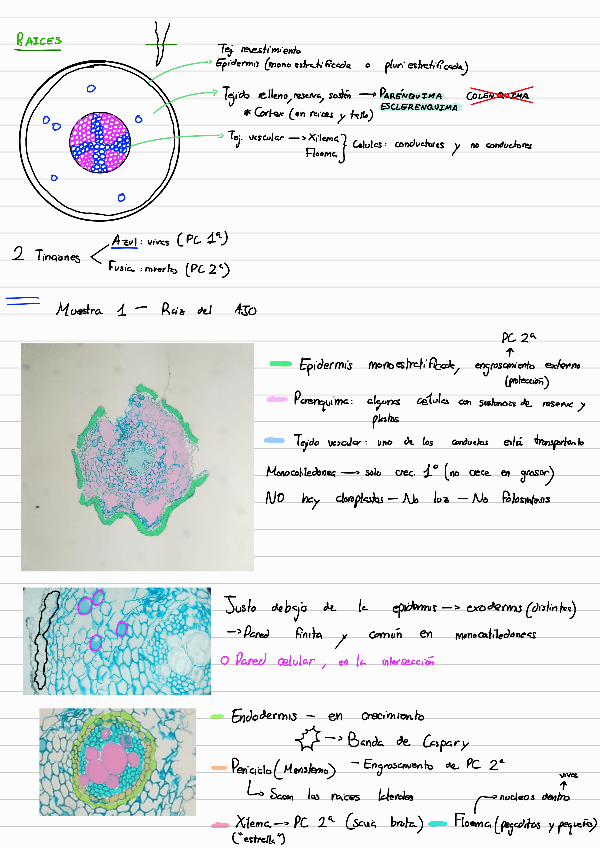 RAICES
Tej revestimiento
Epidermis (monoestratificada o pluriestratificada)
Tejido relleno, reserva, sostén → PARÉNQUIMA COLÉNQUIMA
ESCLERENQUIMA
* Cortex (en raíces y tallo)
Tej. vascular → Xilema
Floema } Celulas: conductores y no conductores
2 Tinciones
Azul: vivas (PC 1ª)
Fusia: muerto (PC 2ª)
Muestra 1 - Raiz del AJO
PC 2ª
Epidermis monoestratificada, engrosamiento externo
(protección)
Parenquima: algunas celulas con sustancias de reserva y
plastos
Tejido vascular: uno de los conductos está transportando
Monocotiledonea → solo crec. 1º (no crece en grosor)
NO hay cloroplastos - No luz - No Fotosintesis
Justo debajo de la epidermis → exodermis (distintas)
→ Pared finita y común en monocotiledoneas
O Pared celular, en la intersección
Endodermis - en crecimiento
→ Banda de Caspary
Periciclo (Meristemo) - Engrosamiento de PC 2ª
↳ Sacan las raices laterales
vivas
→ nucleos dentro
Xilema → PC 2ª (savia bruta)
("estrella")
Floema (pegaditos y pequeños)